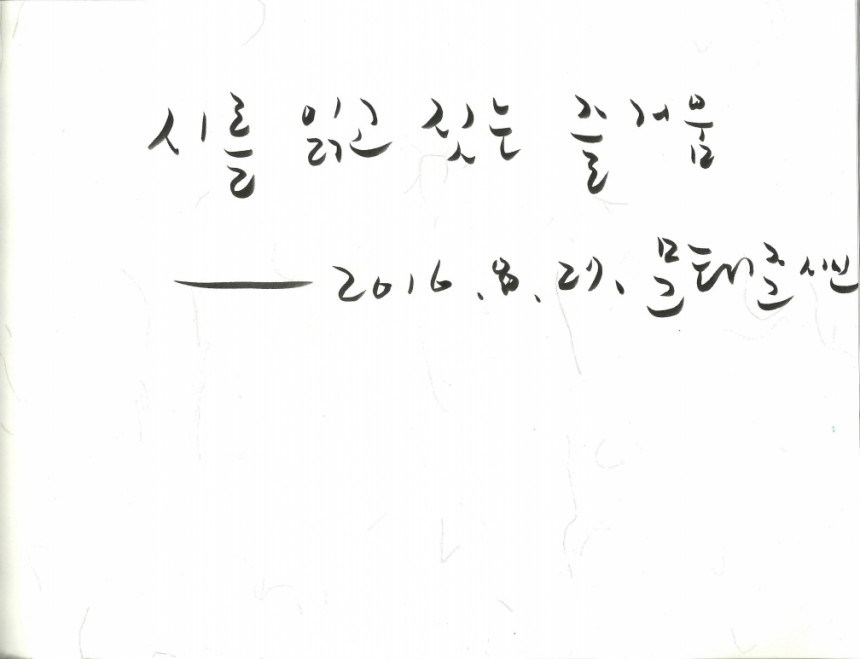 시를 읽고 짓는 즐거움
— 2016. 8. 27. 문태준 시인